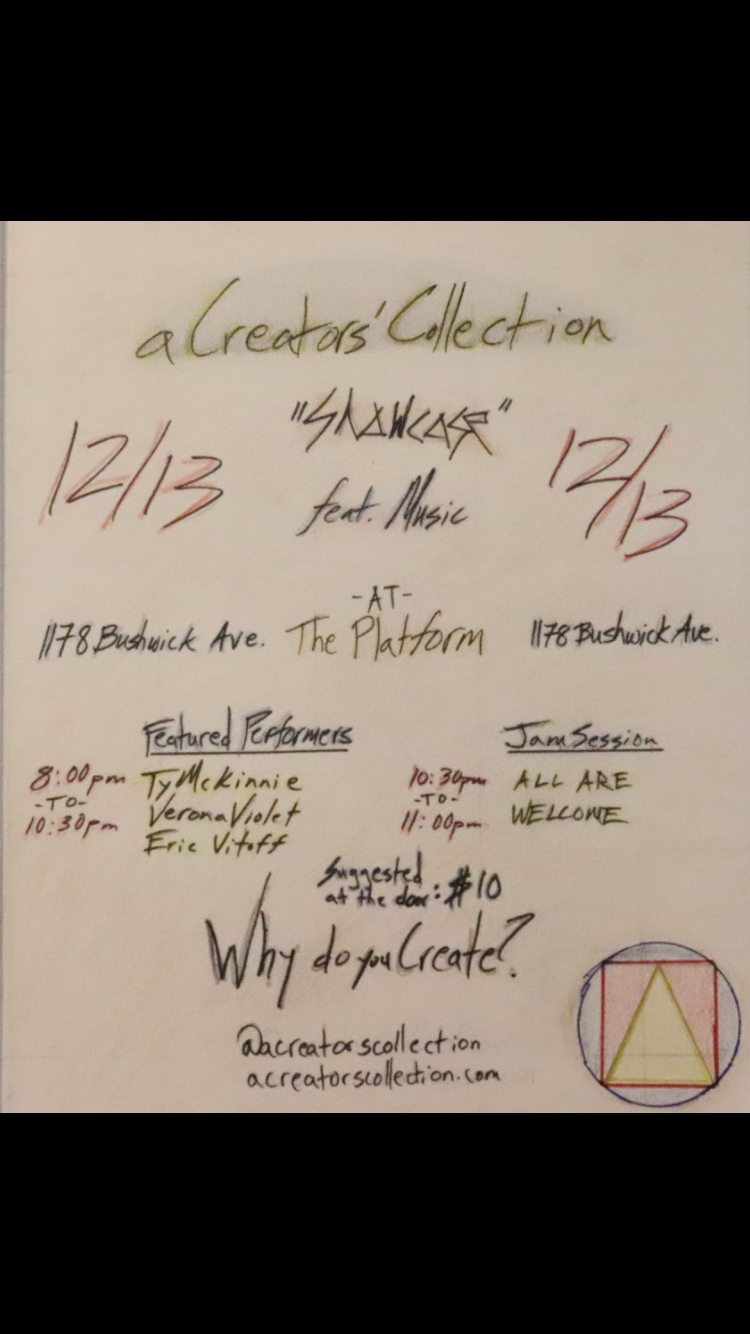 a Creators' Collection
"Showcase"
12/13
12/13
feat. Music
-AT-
1178 Bushwick Ave. The Platform 1178 Bushwick Ave.
Featured Performers
8:00pm Ty McKinnie
-TO- Verona Violet
10:30pm Eric Vitoff
Jam Session
10:30pm ALL ARE
-TO-
11:00pm WELCOME
Suggested
at the door: $10
Why do you Create?
@acreatorscollection
acreatorscollection.com